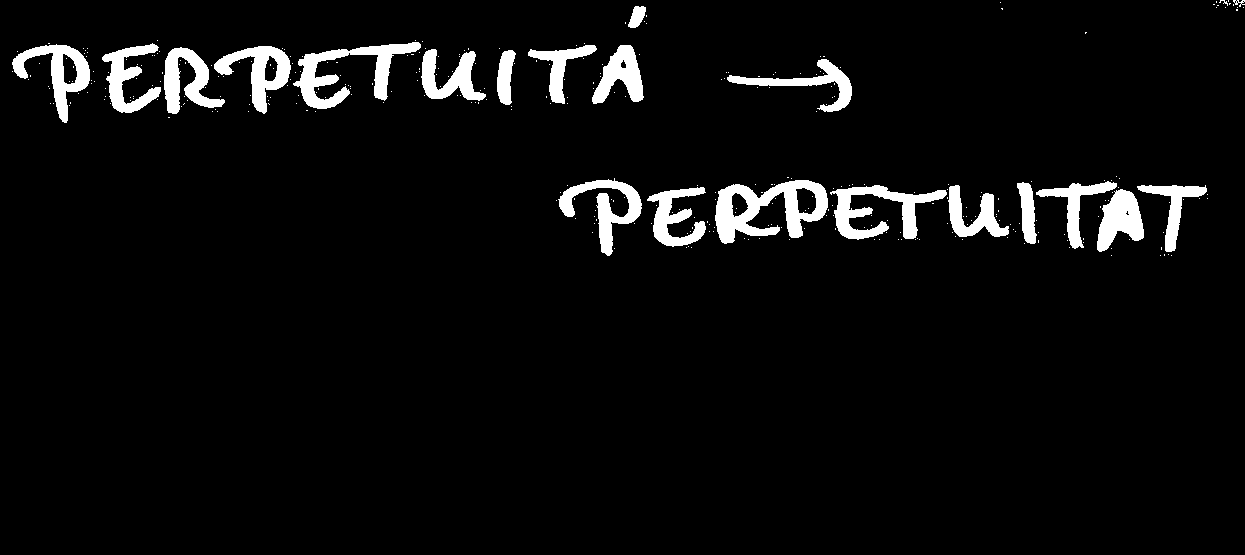 PERPETUITÁ →
PERPETUITAT